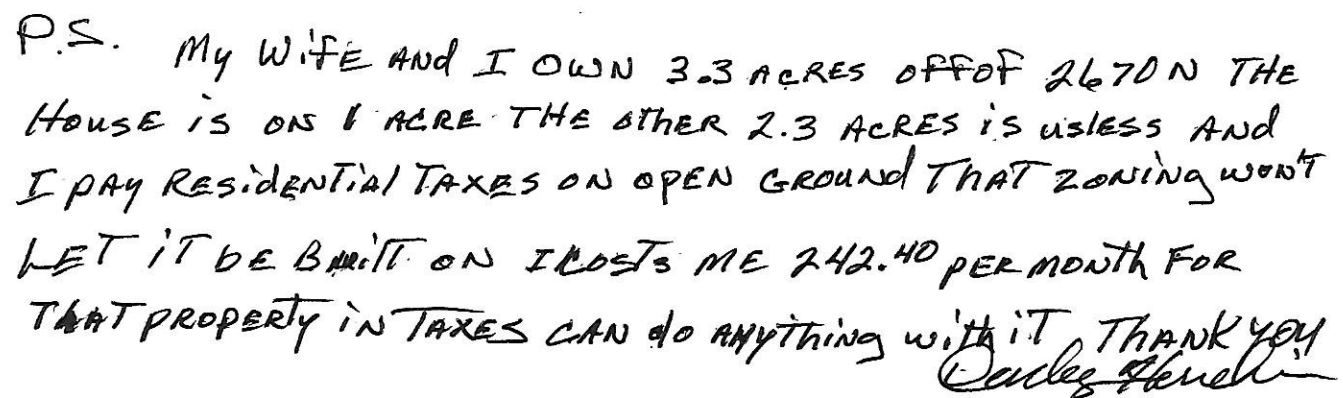 P.S. My WifE AND I OWN 3.3 ACRES OFFOF 2670 N THE
HousE is ON 1 ACRE THE OTHER 2.3 ACRES is uslESS AND
I PAY RESidENTiAl TAXES ON OPEN GROUNd THAT ZONiNg WON'T
LET iT bE Built ON I COSTS ME 242.40 PER MONTh FOR
THAT PROPERTy iN TAXES CAN do ANyThiNg with iT THANK YOU